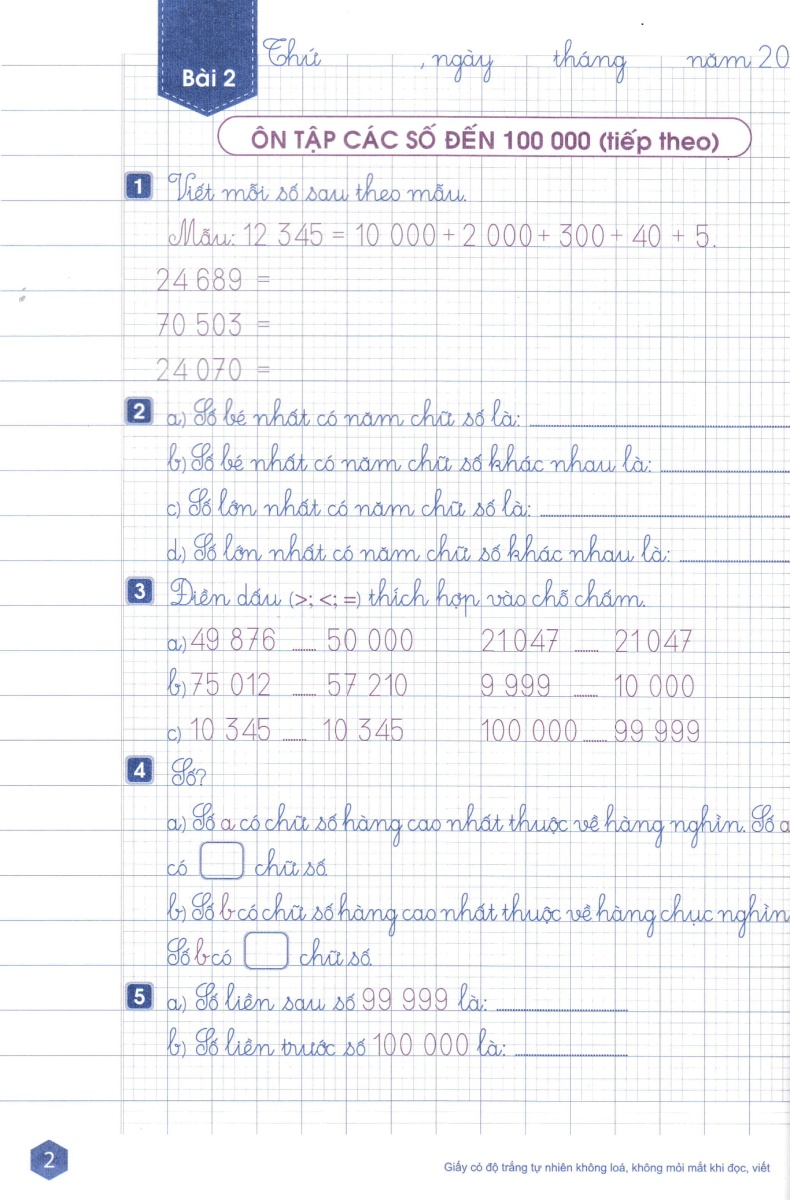 Bài 2
Thứ , ngày tháng năm 20
ÔN TẬP CÁC SỐ ĐẾN 100 000 (tiếp theo)
1 Viết mỗi số sau theo mẫu.
Mẫu: 12 345 = 10 000 + 2 000 + 300 + 40 + 5.
24 689 =
70 503 =
24 070 =
2 a) Số bé nhất có năm chữ số là:
b) Số bé nhất có năm chữ số khác nhau là:
c) Số lớn nhất có năm chữ số là:
d) Số lớn nhất có năm chữ số khác nhau là:
3 Điền dấu (>; <; =) thích hợp vào chỗ chấm.
a) 49 876 ........ 50 000 21 047 ........ 21 047
b) 75 012 ........ 57 210 9 999 ........ 10 000
c) 10 345 ........ 10 345 100 000 ........ 99 999
4 Số?
a) Số a có chữ số hàng cao nhất thuộc về hàng nghìn. Số a
có chữ số.
b) Số b có chữ số hàng cao nhất thuộc về hàng chục nghìn
Số b có chữ số.
5 a) Số liền sau số 99 999 là:
b) Số liền trước số 100 000 là:
2
Giấy có độ trắng tự nhiên không loá, không mỏi mắt khi đọc, viết